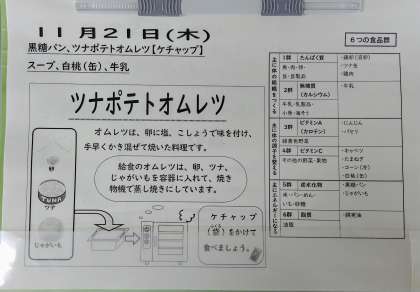 11月21日(木)
黒糖パン、ツナポテトオムレツ【ケチャップ】
スープ、白桃(缶)、牛乳
ツナポテトオムレツ
オムレツは、卵に塩、こしょうで味を付け、
手早くかき混ぜて焼いた料理です。
給食のオムレツは、卵、ツナ、
じゃがいもを容器に入れて、焼き
物機で蒸し焼きにしています。
卵
TUNA
ツナ
じゃがいも
ケチャップ
(袋)をかけて
ふくろ
食べましょう。
6つの食品群
主に体の組織をつくる
1群 たんぱく質
魚・肉・卵・
豆・豆製品
・ツナ缶
・鶏肉
2群 無機質
(カルシウム)
牛乳・乳製品・
小魚・海そう
・牛乳
主に体の調子を整える
3群 ビタミンA
(カロテン)
緑黄色野菜
・にんじん
・パセリ
4群 ビタミンC
その他の野菜・果物
・キャベツ
・たまねぎ
・コーン(缶)
・白桃(缶)
主にエネルギーになる
5群 炭水化物
米・パン・めん・
いも・砂糖
・黒糖パン
・じゃがいも
6群 脂質
油脂